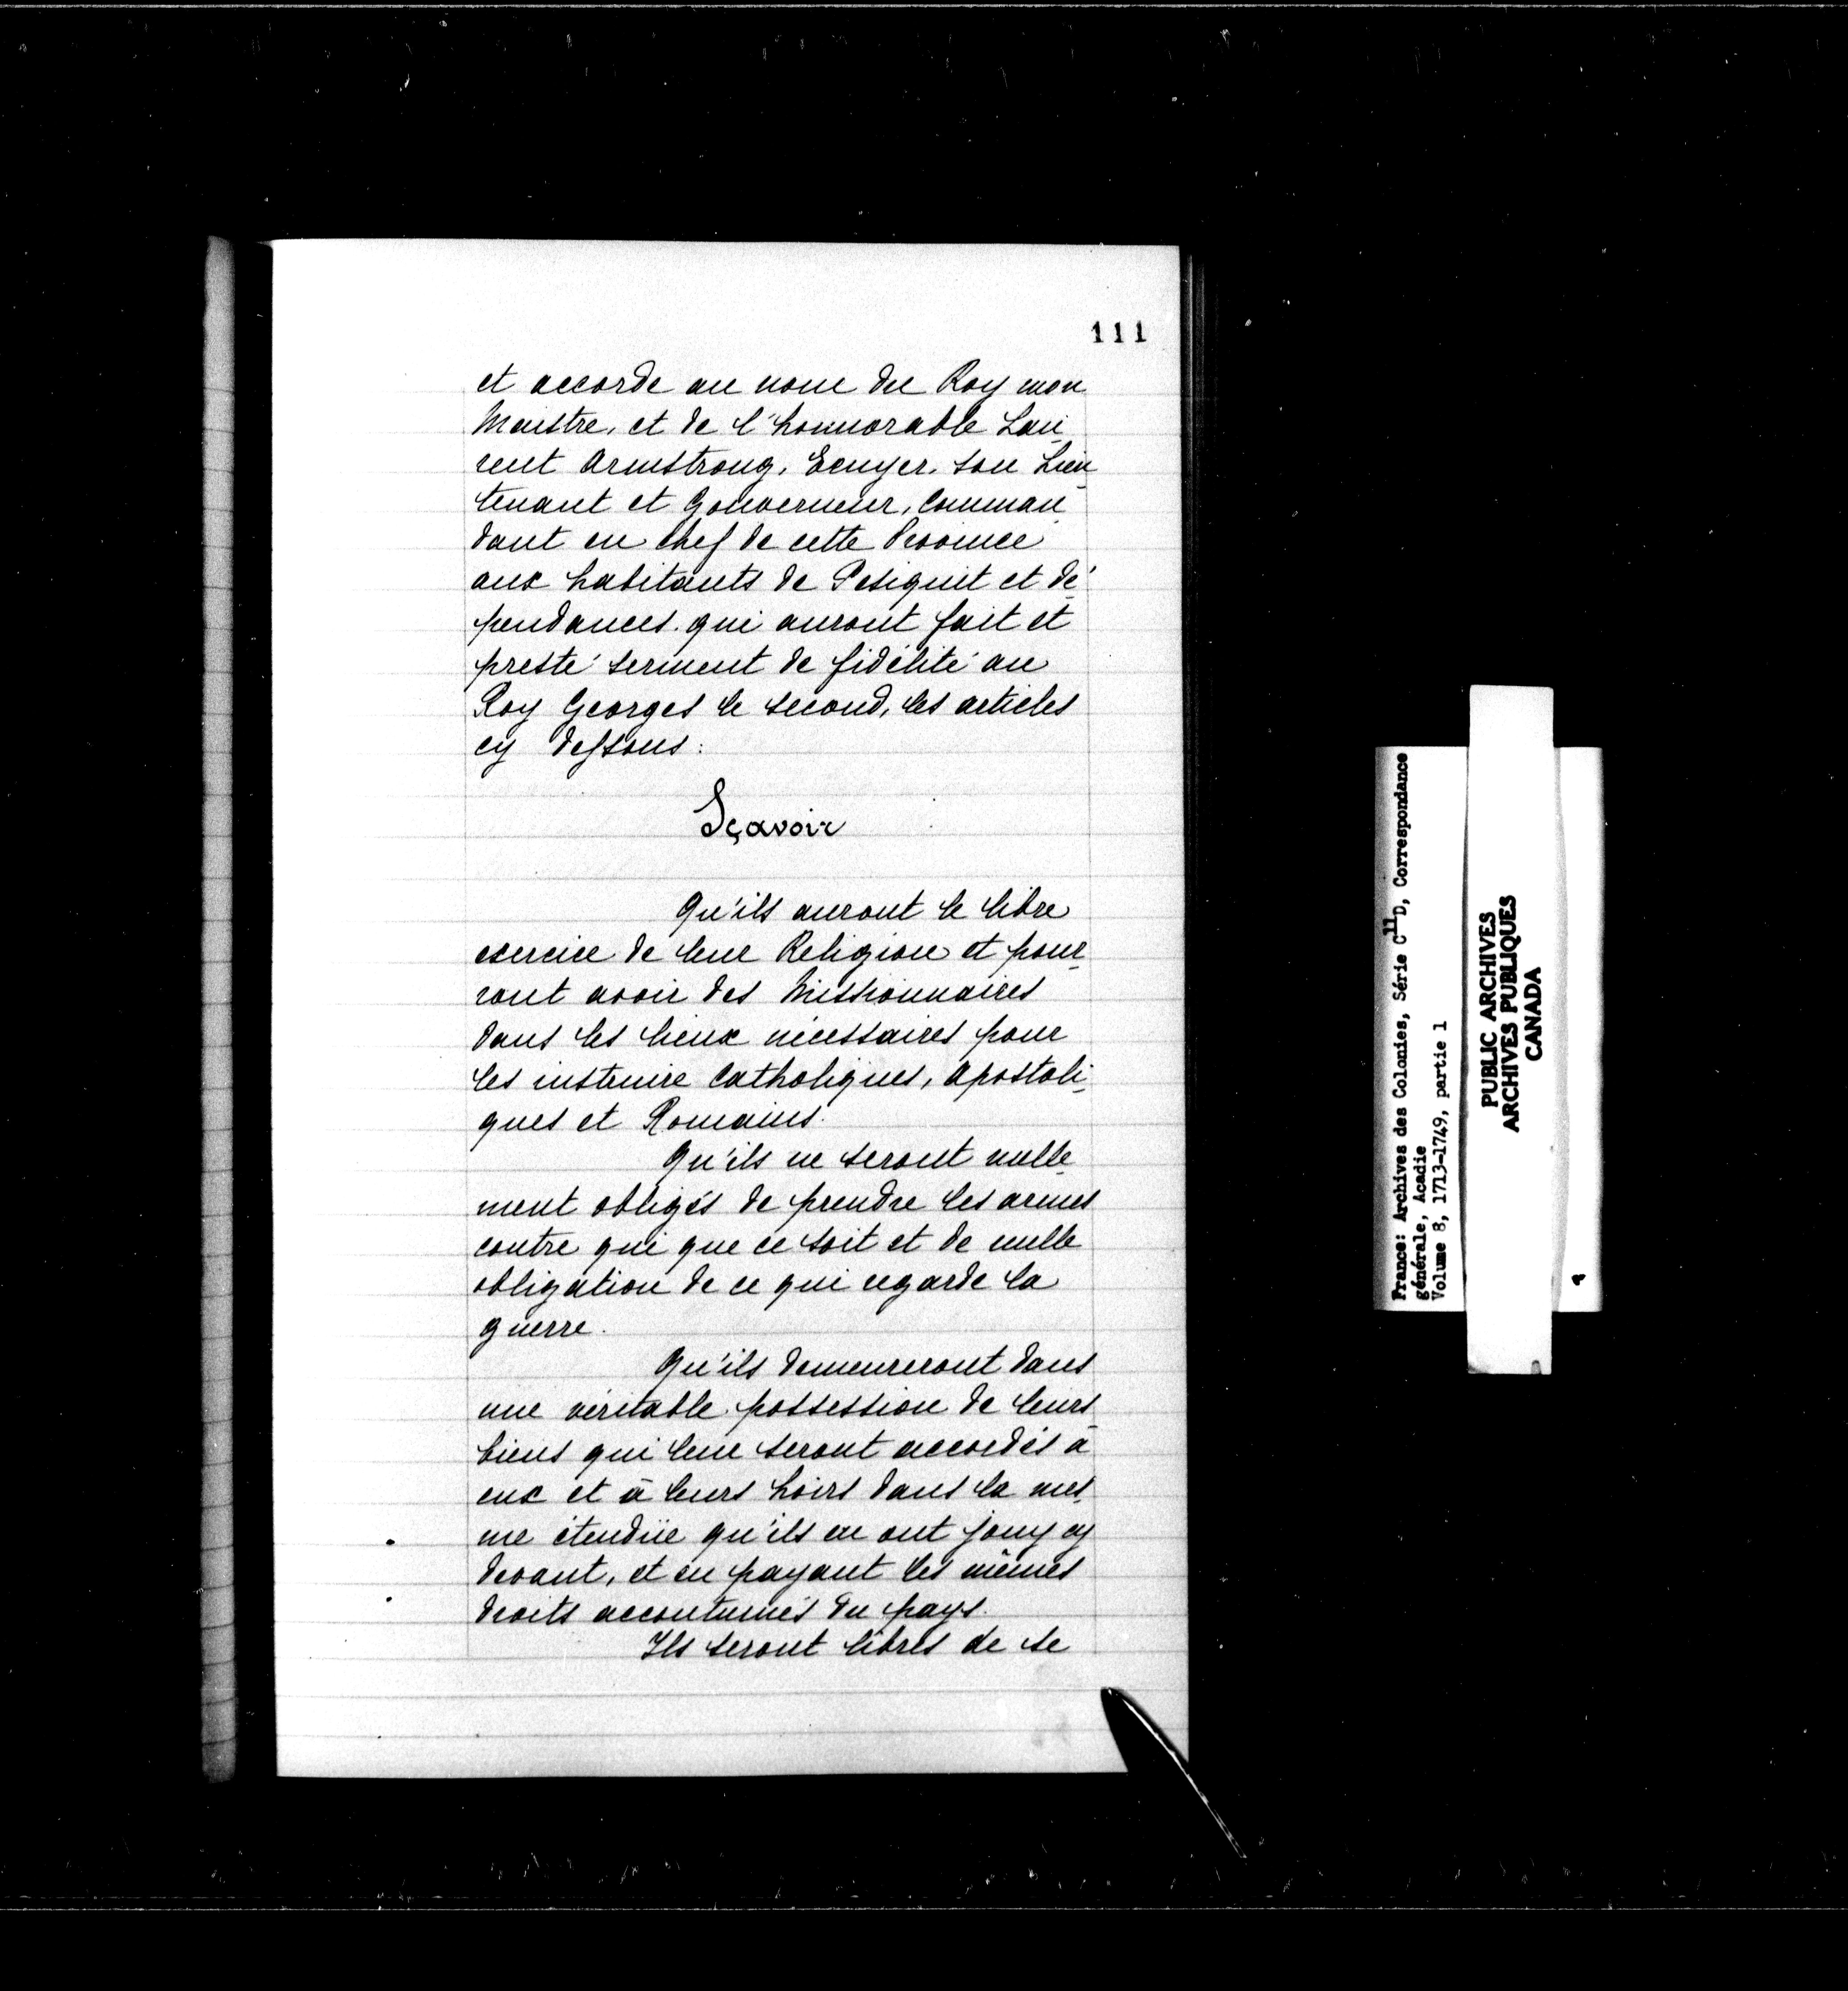 111
et accorde au nom du Roy mon
Maistre, et de l'honnorable Lau-
rent Armstrong, Ecuyer, son Lieu-
tenant et Gouverneur, Comman-
dant en Chef de cette Province
aux habitants de Pesiquit et dé-
pendances qui auront fait et
presté serment de fidélité au
Roy Georges le second, les articles
cy dessous:
Sçavoir
Qu'ils auront le libre
exercice de leur Religion et pour-
ront avoir des Missionnaires
dans les lieux nécessaires pour
les instruire Catholiques, Apostoli-
ques et Romains.
Qu'ils ne seront nulle-
ment obligés de prendre les armes
contre qui que ce soit et de nulle
obligation de ce qui regarde la
guerre.
Qu'ils demeureront dans
une véritable possession de leurs
biens qui leur seront accordés à
eux et à leurs hoirs dans la mes-
me étendüe qu'ils en ont jouy cy
devant, et en payant les mêmes
droits accoutumés du pays.
Ils seront libres de se
France: Archives des Colonies, Série C11D, Correspondance
générale, Acadie
Volume 8, 1713-1749, partie 1
PUBLIC ARCHIVES
ARCHIVES PUBLIQUES
CANADA